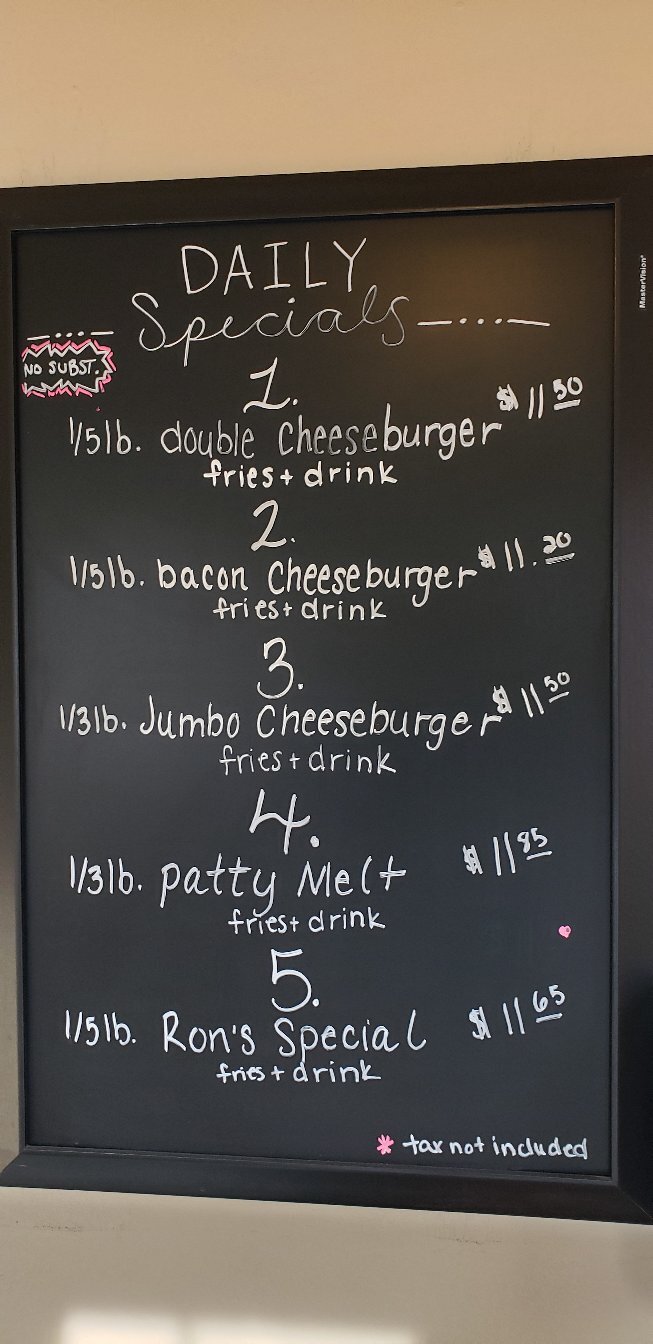 DAILY
Specials
NO SUBST.
1.
1/5lb. double cheeseburger $11 50
fries + drink
2.
1/5lb. bacon cheeseburger $11.20
fries + drink
3.
1/3lb. Jumbo Cheeseburger $11 50
fries + drink
4.
1/3lb. Patty Melt $11 95
fries + drink
5.
1/5lb. Ron's Special $11 65
fries + drink
* tax not included
MasterVision®